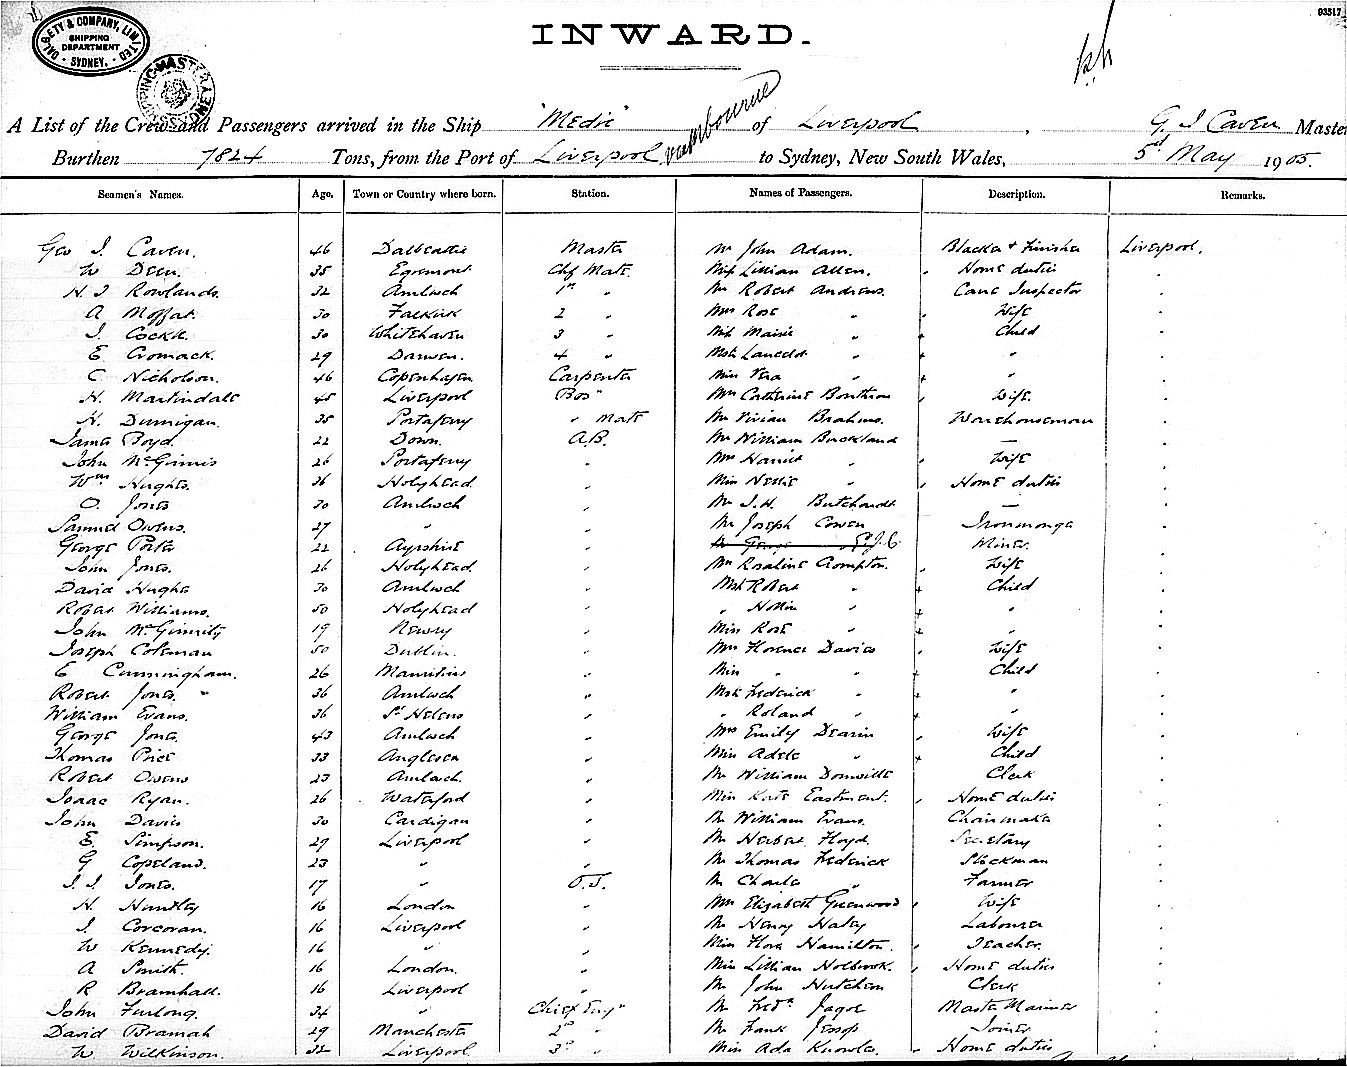 DALGETY & COMPANY, LIMITED
SHIPPING DEPARTMENT
SYDNEY.
93517
INWARD.
A List of the Crew and Passengers arrived in the Ship "Medic" of Liverpool, G. J Caven Master
Burthen 7824 Tons, from the Port of Liverpool via Melbourne to Sydney, New South Wales, 5th May 1905.
Seamen's Names. Age. Town or Country where born. Station. Names of Passengers. Description. Remarks.
Geo J. Caven. 46 Dalbeattie Master Mr John Adam. Blacker & Finisher Liverpool.
W Deen. 35 Egremont Chf Mate. Miss Lillian Allen. Home duties
H. J Rowlands. 32 Amlwch 1st " Mr Robert Andrews. Cane Inspector
A Moffat. 30 Falkirk 2 " Mrs Rose " Wife
J. Cockle. 30 Whitehaven 3 " Miss Maisie " Child
E Cromack. 29 Darwen. 4 " Mstr Lancelot " "
C Nicholson. 46 Copenhagen Carpenter Miss Vera " "
H. Martindale 45 Liverpool Bos" Mrs Catherine Wife.
H. Dunnigan. 35 Portaferry " Mate Mr Vivian Brahms. Warehouseman
James Boyd. 22 Down. A.B. Mr William Buckland —
John McGinnis 26 Portaferry " Mrs Harriet " Wife
Wm Hughes. 36 Holyhead. " Miss Nellie " Home duties
O. Jones 30 Amlwch " Mr J. H. —
Samuel Owens. 27 " " Mr Joseph Cowen Ironmonger
George Porter 22 Ayrshire " Mr George G.J.C. Miner.
John Jones. 26 Holyhead. " Mrs Rosaline Crompton. Wife
David Hughes 30 Amlwch " Mstr Robert " Child
Robert Williams. 50 Holyhead " " " "
John McGinnity 19 Newry " Miss Rose " "
Joseph Coleman 50 Dublin. " Mrs Florence Davies Wife
E Cunningham. 26 Mauritius " Miss " " Child
Robert Jones. " 36 Amlwch " Mstr Frederick " "
William Evans. 36 St Helens " " Roland " "
George Jones. 43 Amlwch " Mrs Emily Dearin Wife
Thomas Price 33 Anglesea " Miss Adele " Child
Robert Owens 23 Amlwch " Mr William Domville Clerk
Isaac Ryan. 26 Waterford " Miss Kate Eastment. Home duties
John Davies 30 Cardigan " Mr William Evans. Chairmaker
E. Simpson. 29 Liverpool " Mr Herbert Floyd. Secretary
G Copeland. 23 " " Mr Thomas Frederick Stockman
J. J. Jones. 17 " O.S. Mr Charles " Farmer
H. Huntley 16 London " Mrs Elizabeth Greenwood Wife
J. Corcoran. 16 Liverpool " Mr Henry Haley Labourer
W Kennedy. 16 " " Miss Flora Hamilton. Teacher.
A Smith. 16 London. " Miss Lillian Holbrook. Home duties
R Bramhall. 16 Liverpool " Mr John Hutchion Clerk
John Furlong. 34 " Chief Eng" Mr Fredk Jagoe Master Mariner
David Bramah 29 Manchester 2nd " Mr Frank Jessop Joiner
W Wilkinson. 32 Liverpool 3rd " Miss Ada Knowles. Home duties